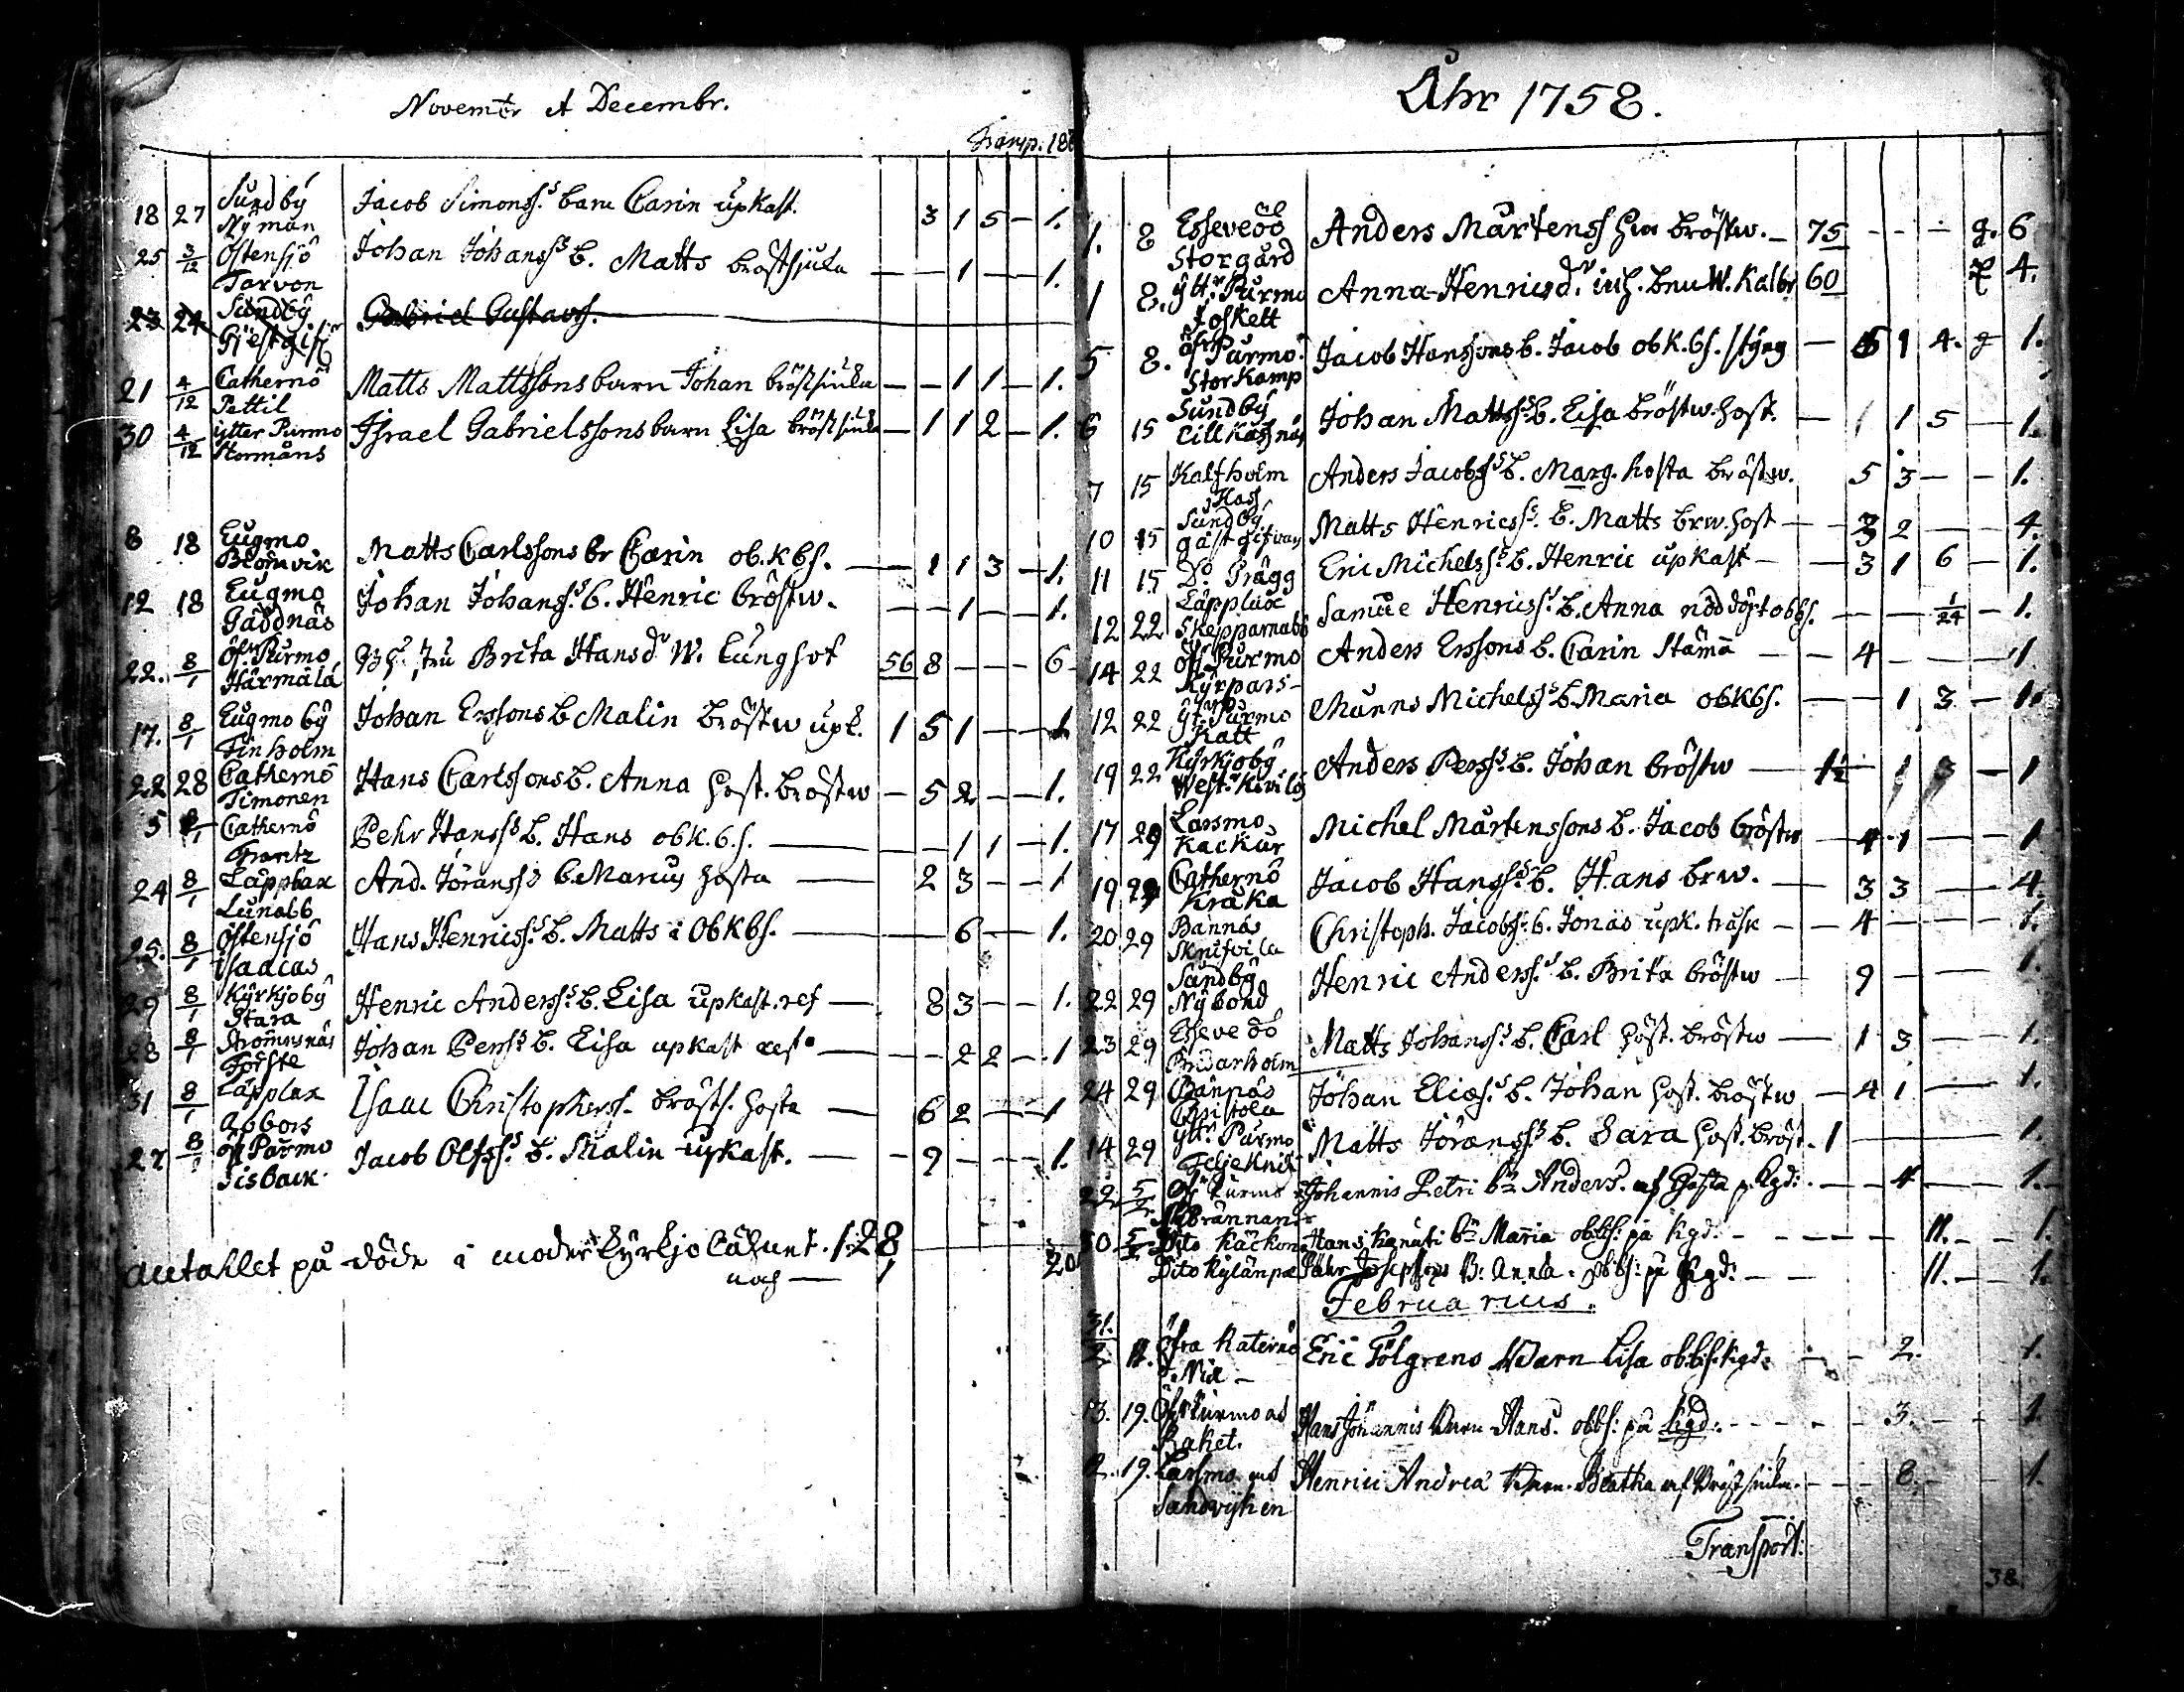 Novembr et Decembr.
Transp. 18
18 27 Sundby Nyman Jacob Simonss. barn Carin upkast. 3 1 5 — 1.
25 3/12 Östensjö Tarvon Johan Johanss. b. Matts bröstsjuka — — 1 — 1.
23 24 Sundby Gjestgif Gabriel Gustavs.
21 4/12 Cathernö Pettil Matts Mattssons barn Johan bröstsiuka — — 1 1 — 1.
30 4/12 ytter Purmo Stormåns Israel Gabrielssons barn Lisa bröstsiuka — 1 1 2 — 1.
8 18 Eugmo Blomvik Matts Carlssons br Carin ob.kbs. — 1 1 3 — 1.
12 18 Eugmo Gäddnäs Johan Johanss. b. Henric bröstw. — — 1 — 1.
22. 8/1 öf. Purmo Härmälä stru Brita Hansdr W. Lungsot 56 8 — — — 6
17. 8/1 Eugmo by Finholm Johan Erssons b Malin bröstw upk. 1 5 1 — — 1
22 28 Cathernö Timonen Hans Carlssons b. Anna host. bröstw — 5 2 — — 1.
5 8/1 Catherno Frantz Pehr Hanss. b. Hans obk.b.s. — — — 1 1 — 1.
24 8/1 Lappbax Lunabb And. Jöranss b. Marcus hosta — 2 3 — — 1
25. 8/1 Östensjö Isaacas Hans Henricss. b. Matts i obkbs. — — 6 — 1.
29 8/1 Kyrkjoby Stara Henric Anderss. b. Lisa upkast. ref — 8 3 — — 1.
28 8/1 Strömsnäs Forste Johan Perss. b. Lisa upkast ref. — — — 2 2 — 1
31 8/1 Lapplax Abbors Isaac Christophers. bröstv. hosta — 6 2 — — 1
27 8/1 öf Purmo Jisback Jacob Olfss. b. Malin upkast. — — 9 — — — 1.
antahlet på döde i moder Kyrkjo Låhnet. 128 20
noch — 1
Åhr 1758.
1. 8 Esseveöö Storgård Anders Mårtenss Hu bröstw. — 75 - - - g. 6
1 8. ytt. Purmo Joskett Anna Henricsdr. inh. W. Kalbr 60 4.
5 8. öf Purmo Stor Kamp Jacob Hanssons b. Jacob obk.bs. styng — 5 1 4. g 1.
6 15 Sundby Lill Kassnäs Johan Mattss. b. Lisa bröstw. host. — 1 1 5 — 1.
7 15 Kalfholm Kass Anders Jacobss. b. Marg. hosta bröstw. 5 3 — — 1.
10 15 Sundby gästgifvas Matts Henricss. b. Matts brw. host — 3 2 — 4.
11 15 Do. Prägg Eric Michelss. b. Henric upkast — — 3 1 6 — 1.
12 22 Lapplax Skepparnabb Samue Henricss. b. Anna nöddöpt obbs. — — 1/24 — 1.
14 22 öf Purmo Kyrpars Anders Erssons b. Carin Stämã — — 4 — — — 1.
12 22 yt. Purmo Katt Månns Michelss b. Maria obkbs. — — 1 3 — 1.
19 22 Kyrkjoby West. Kivilös Anders Perss. b. Johan bröstw — 1½ — 1 3 — 1
17 29 Larsmo Kackur Michel Mårtenssons b. Jacob bröstw — 4 1 — — 1
19 29 Catherno Kråka Jacob Hanss. b. Hans brw. — 3 3 — — 4.
20 29 Bännäs Knifvila Christoph. Jacobss. b. Jonas upk. trask — — 4 — — — 1.
22 29 Sundby Nybond Henric Anderss. b. Brita bröstw — 9 — — 1.
23 29 Esseveöö Brudarholm Matts Johanss. b. Carl host. bröstw — 1 3 — — 1.
24 29 Bännäs Christola Johan Elies. b. Johan host. bröstw — 4 1 — 1.
14 29 ytt. Purmo Matts Jöranss. b. Sara host. bröst. 1 — — — 1.
22 5/2 Öf Purmo Brännan Johannis Petri bn Anders. af Hosta p. Kgd: — 4 — — 1.
30 5/2 Dito Käckon Hans Kanuti bn Maria obbs: på Kgd. - — — 11. — 1.
Dito Kylänpä Påhr Josephs B: Anna. obbs: på Kgd: — — 11. — 1.
Februarius.
31. 2. 11. öfra Katernö Nix — Eric Fölgrens Barn Lisa obbs. Kgd. - — 2. 1.
13. 19. Öf: Purmo ad Raket. Hans Johannis Barn Hans. obbs: på Kgd: - - - 3. — 1.
2. 19. Larsmo ad Sandwijken Henrici Andreæ Barn. Beatha af Bröstsiuka. - - - 8. - 1.
Transport:
38